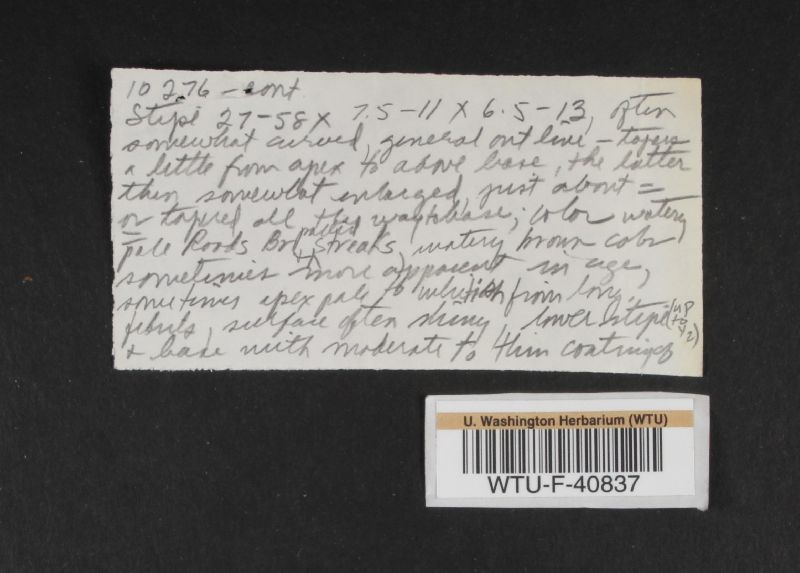 10 276 - cont.
Stipe 27-58 x 7.5-11 x 6.5-13, often
somewhat curved, general outline - tapers
a little from apex to above base, the latter
then somewhat enlarged, just about =
or tapered all the way to base; color watery
pale Roods Br (+ paler streaks), watery brown color
sometimes more apparent in age,
sometimes apex pale to whitish from long.
fibrils, surface often shiny, lower stipe (up to 1/2)
+ base with moderate to thin coating of
U. Washington Herbarium (WTU)
WTU-F-40837